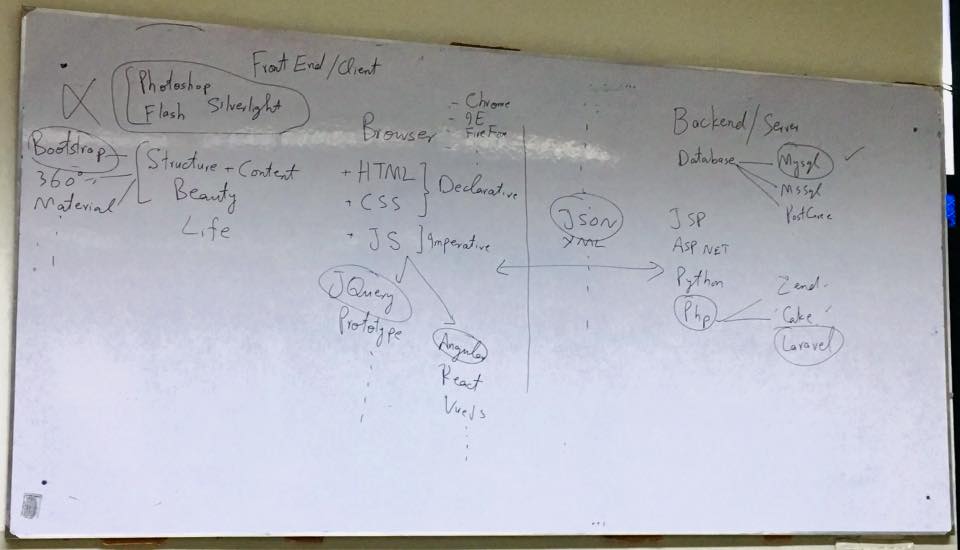 Front End/Client
Photoshop
Flash Silverlight
Bootstrap
360°
Material
Structure + Content
Beauty
Life
- Chrome
- IE
- FireFox
Browser
+ HTML
+ CSS
Declarative
+ JS
Imperative
JQuery
Prototype
Angular
React
VueJs
JSON
XML
Backend/Server
Database
Mysql
Mssql
JSP
ASP NET
Python
Php
Zend
Cake
Laravel